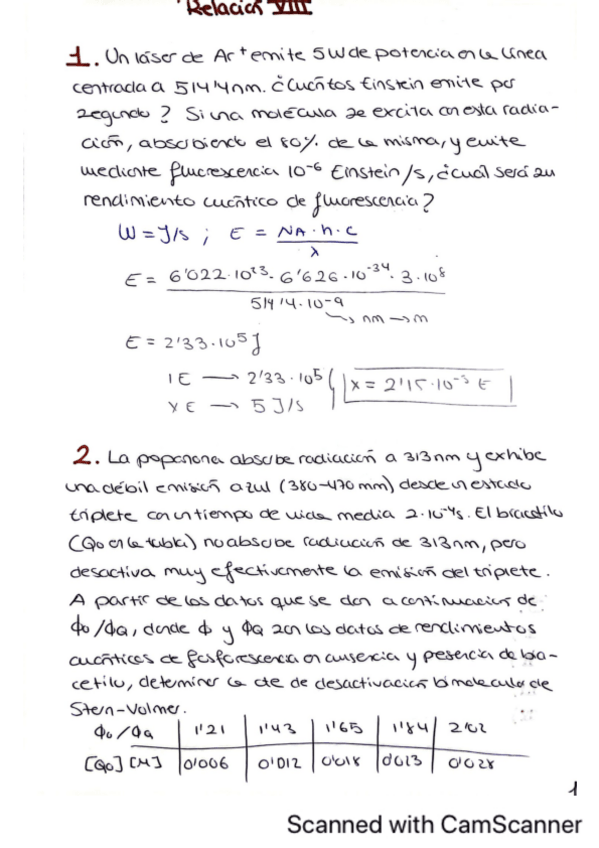 Relación VIII
1. Un láser de Ar+ emite 5W de potencia en la línea
centrada a 514'4nm. ¿Cuántos Einstein emite por
segundo? Si una molécula se excita con esta radia-
ción, absorbiendo el 80% de la misma, y emite
mediante fluorescencia 10⁻⁶ Einstein/s, ¿cuál será su
rendimiento cuántico de fluorescencia?
W = J/s ; E = NA·h·c / λ
E = 6'022·10²³·6'626·10⁻³⁴·3·10⁸ / 514'4·10⁻⁹
nm → m
E = 2'33·10⁵ J
1E → 2'33·10⁵ x = 2'15·10⁻⁵ E
x E → 5 J/s
2. La propanona absorbe radiación a 313nm y exhibe
una débil emisión azul (380-470 mm) desde un estado
triplete con un tiempo de vida media 2·10⁻⁴s. El biacetilo
(Q₀ en la tabla) no absorbe radiación de 313nm, pero
desactiva muy efectivamente la emisión del triplete.
A partir de los datos que se dan a continuación de
Φ₀/ΦQ, donde Φ y ΦQ son los datos de rendimientos
cuánticos de fosforescencia en ausencia y presencia de bia-
cetilo, determiner la cte de desactivación bimolecular de
Stern-Volmer.
Φ₀/ΦQ 1'21 1'43 1'65 1'84 2'02
[Q₀] [M] 0'006 0'012 0'018 0'023 0'028
1
Scanned with CamScanner